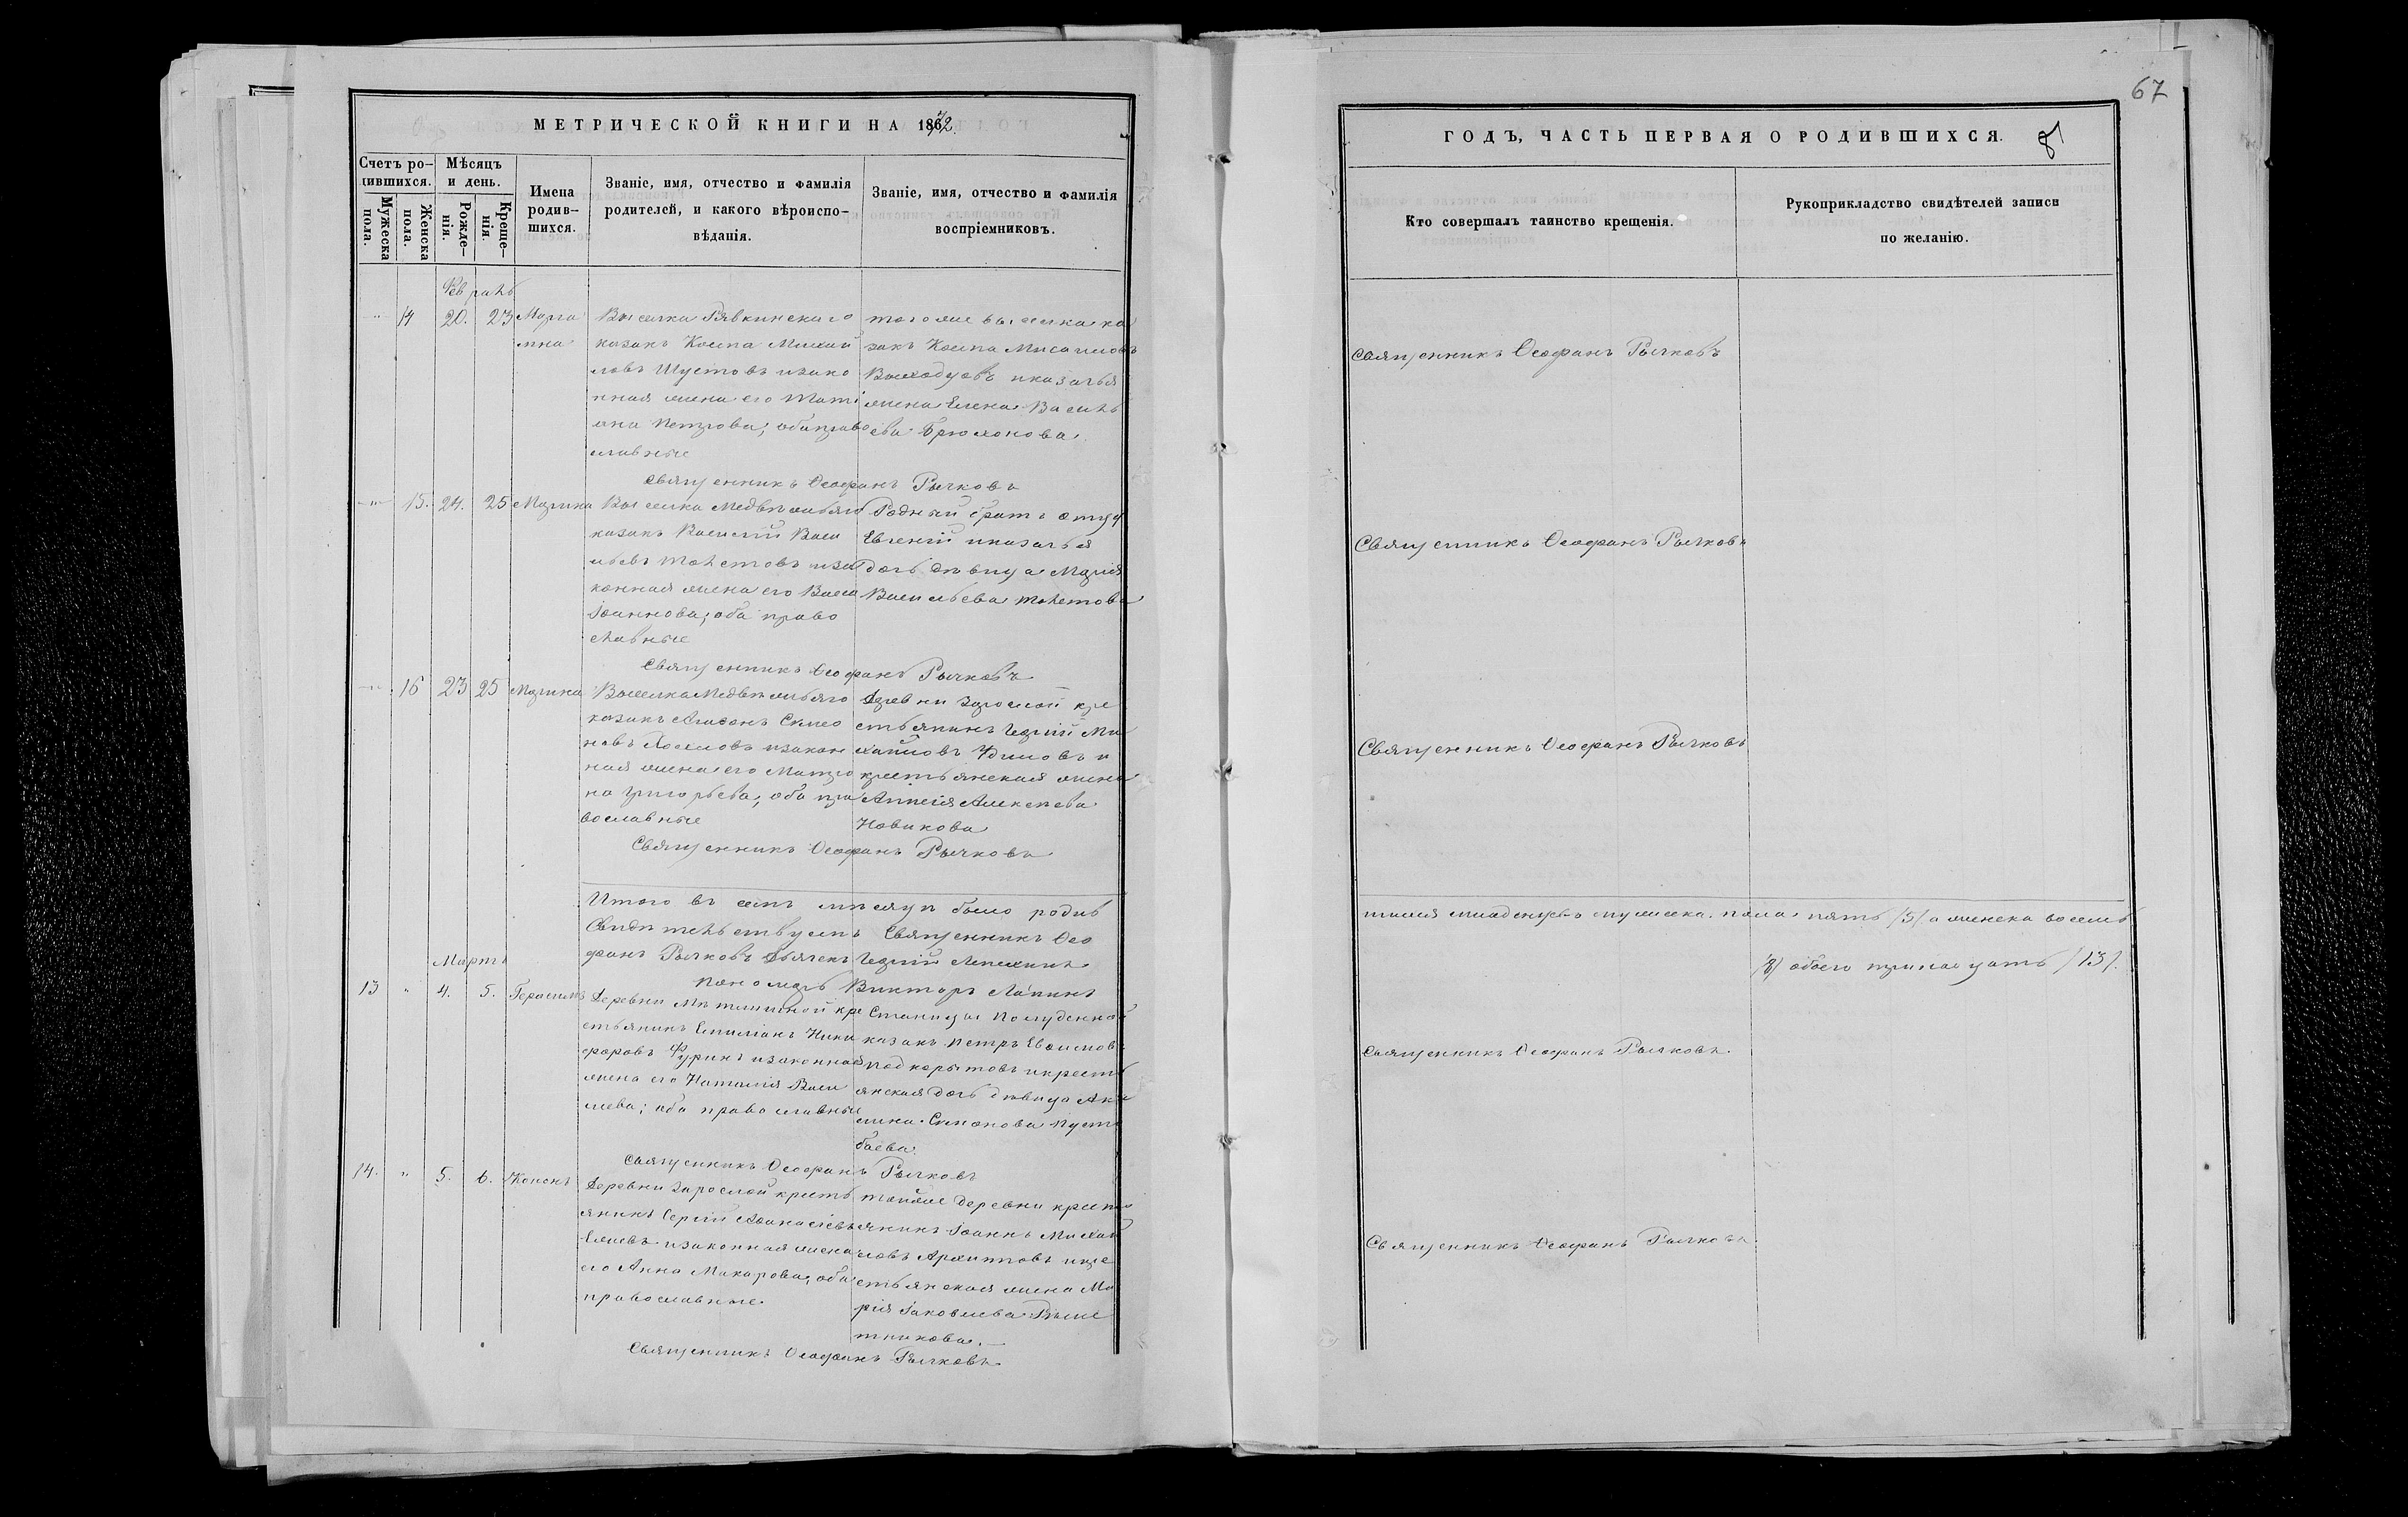 МЕТРИЧЕСКОЙ КНИГИ НА 1872
Счетъ ро-
дившихся.
Мужеска пола.
Женска пола.
Мѣсяцъ и день.
Рожде-нія.
Креще-нія.
Имена родив-шихся.
Званіе, имя, отчество и фамилія
родителей, и какого вѣроиспо-
вѣданія.
Званіе, имя, отчество и фамилія
воспріемниковъ.
Февраль
" 14 20. 23 Марга
Выселка Рявкинскаго
казакъ Косма Михаи
ловъ Шустовъ изако
нная жена его Тати
яна Петрова, оба право
славные
тогоже выселка ка
закъ Косма
иказачья
жена Елена Василь
ева Брюхонова
Священникъ Ѳеофанъ Рычковъ
" 15. 24. 25 Марина
Выселка Медвѣжьяго
казакъ Василій Васи
льевъ Толстовъ иза
конная жена его Васса
Іоаннова; оба право
славные
Родный братъ отцу
Евгеній иказачья
дочь дѣвица Марія
Васильева Толстова
Священникъ Ѳеофанъ Рычковъ
" 16 23 25 Марина
Выселка Медвѣжьяго
казакъ Агафонъ Симео
новъ изакон
ная жена его Матро
на Григорьева, оба пра
вославные
Деревни Зарослой кре
стьянинъ Георгій Ми
хаиловъ и
крестьянская жена
Алексѣева
Новикова
Священникъ Ѳеофанъ Рычковъ
Итого въ семъ мѣсяцѣ было родив
Свидѣтельствуемъ Священникъ Ѳео
фанъ Рычковъ Дьячекъ Георгій Лепехинъ
Пономарь Викторъ Лапинъ
Мартъ
13 " 4. 5. Герасимъ
Деревни кре
стьянинъ Емиліанъ Ники
форовъ Фуринъ изаконная
жена его Наталія Васи
льева; оба православные
Станицы Полуденной
казакъ Петръ Евѳимовъ
Подкорытовъ икресть
янская дочь дѣвица Аку
лина Симонова Пуст
баева
Священникъ Ѳеофанъ Рычковъ
14. " 5. 6. Кононъ
Деревни Зарослой кресть
янинъ Сергій Аѳанасіевъ
изаконная жена
его Анна Макарова, оба
православные.
тойже деревни кресть
янинъ Іоаннъ Михаи
ловъ Архиповъ икре
стьянская жена Ма
рія Іаковлева
тникова.
Священникъ Ѳеофанъ Рычковъ
67
ГОДЪ, ЧАСТЬ ПЕРВАЯ О РОДИВШИХСЯ.
Кто совершалъ таинство крещенія.
Рукоприкладство свидѣтелей записи
по желанію.
Священникъ Ѳеофанъ Рычковъ
Священникъ Ѳеофанъ Рычковъ
Священникъ Ѳеофанъ Рычковъ
шихся младенцевъ мужеска пола пять /5/ а женска восемь
/8/ обоего тринадцать /13/.
Священникъ Ѳеофанъ Рычковъ.
Священникъ Ѳеофанъ Рычковъ.